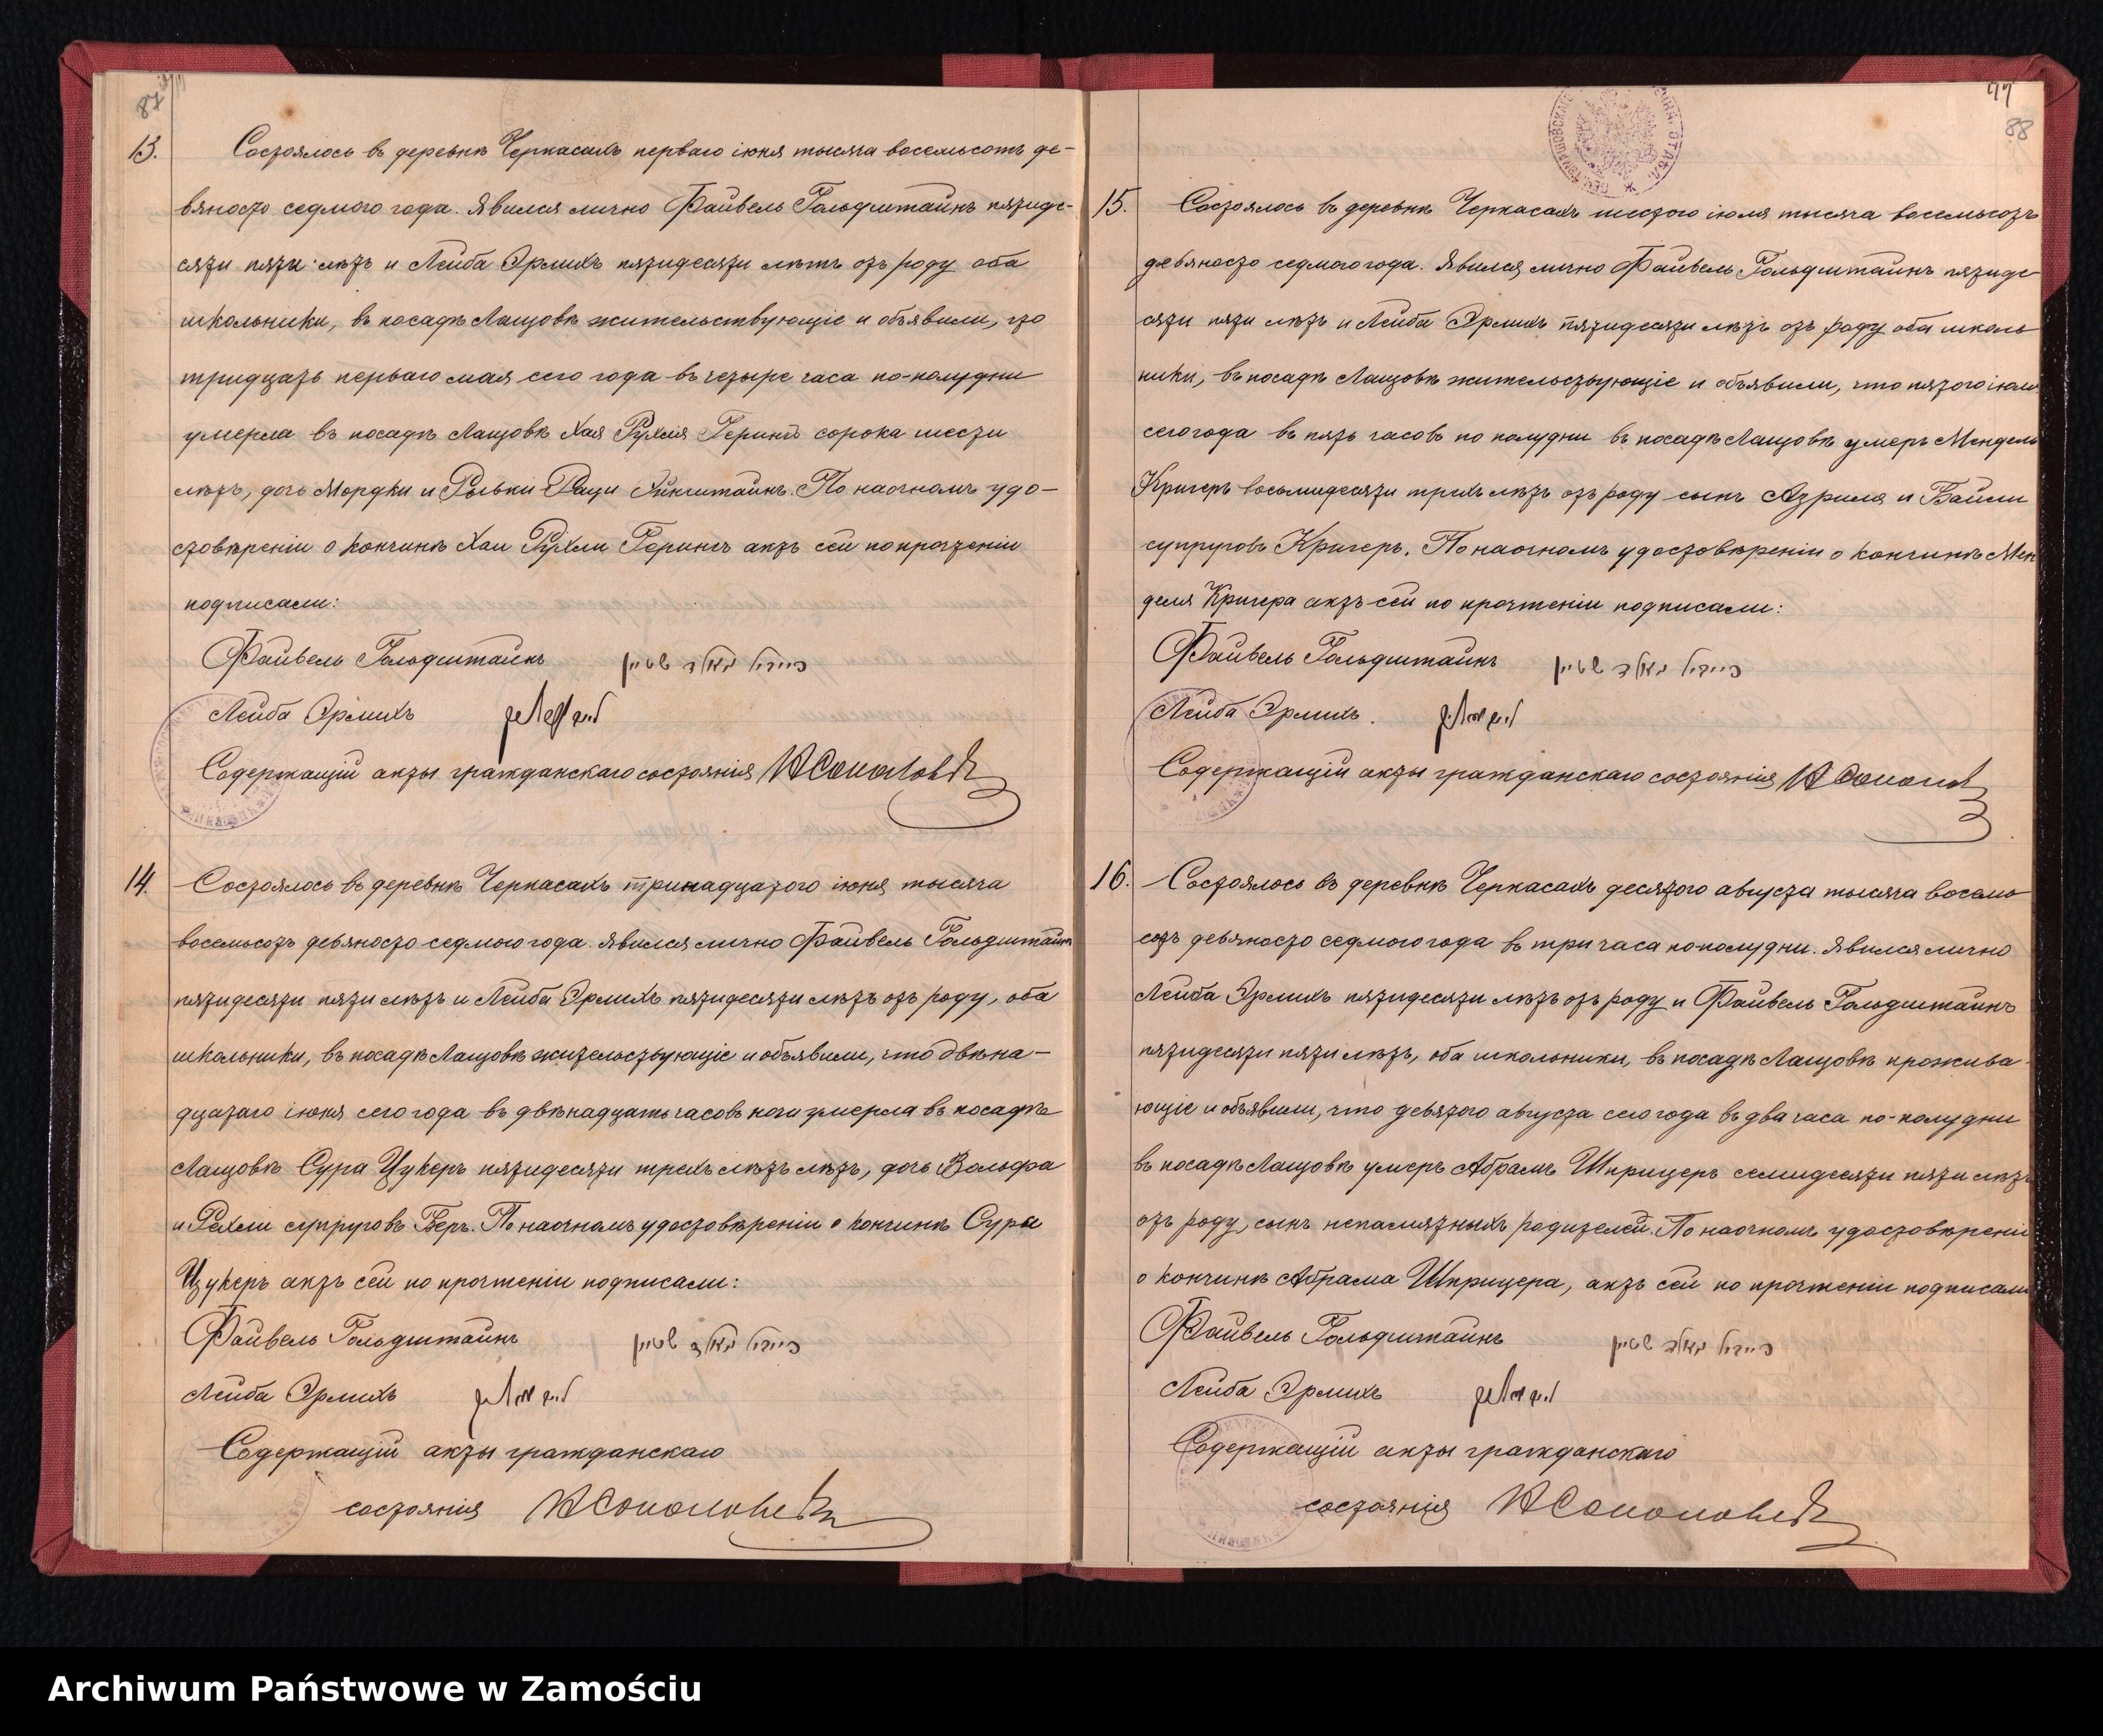 87
13. Состоялось въ деревнѣ Черкасахъ перваго іюня тысяча восемьсотъ де-
вяносто седмого года. Явился лично Файвель Гольдштайнъ пятиде-
сяти пяти лѣтъ и Лейба Эрлихъ пятидесяти лѣтъ отъ роду оба
школьники, въ посадѣ Лащовѣ жительствующіе и объявили, что
тридцать перваго мая сего года въ четыре часа по-полудни
умерла въ посадѣ Лащовѣ Хая Рухля Герингъ сорока шести
лѣтъ, дочь Мордки и Рывки Раци Айнштайнъ. По наочномъ удо-
стовѣреніи о кончинѣ Хаи Рухли Герингъ актъ сей по прочтеніи
подписали:
Файвель Гольдштайнъ פייוויל גאלדשטיין
Лейба Эрлихъ לייב ערליך
Содержащій акты гражданскаго состоянія
14. Состоялось въ деревнѣ Черкасахъ тринадцатого іюня тысяча
восемьсотъ девяносто седмого года. Явился лично Файвель Гольдштайнъ
пятидесяти пяти лѣтъ и Лейба Эрлихъ пятидесяти лѣтъ отъ роду, оба
школьники, въ посадѣ Лащовѣ жительствующіе и объявили, что двѣна-
дцатаго іюня сего года въ двѣнадцать часовъ ночи умерла въ посадѣ
Лащовѣ Сура Цукеръ пятидесяти трехъ лѣтъ лѣтъ, дочь Вольфа
и Рехли супруговъ Беръ. По наочномъ удостовѣреніи о кончинѣ Суры
Цукеръ актъ сей по прочтеніи подписали:
Файвель Гольдштайнъ פייוויל גאלדשטיין
Лейба Эрлихъ לייב ערליך
Содержащій акты гражданскаго
состоянія
88
15. Состоялось въ деревнѣ Черкасахъ шестого іюля тысяча восемьсотъ
девяносто седмого года. Явился лично Файвель Гольдштайнъ пятиде
сяти пяти лѣтъ и Лейба Эрлихъ пятидесяти лѣтъ отъ роду оба школь
ники, въ посадѣ Лащовѣ жительствующіе и объявили, что пятого іюля
сего года въ пять часовъ по полудни въ посадѣ Лащовѣ умеръ Мендель
Кригеръ восьмидесяти трехъ лѣтъ отъ роду сынъ Азриля и Байли
супруговъ Кригеръ. По наочномъ удостовѣреніи о кончинѣ Мен
деля Кригера актъ сей по прочтеніи подписали:
Файвель Гольдштайнъ פייוויל גאלדשטיין
Лейба Эрлихъ. לייב ערליך
Содержащій акты гражданскаго состоянія
16. Состоялось въ деревнѣ Черкасахъ десятого августа тысяча восемь
сотъ девяносто седмого года въ три часа по полудни. Явился лично
Лейба Эрлихъ пятидесяти лѣтъ отъ роду и Файвель Гольдштайнъ
пятидесяти пяти лѣтъ, оба школьники, въ посадѣ Лащовѣ прожива
ющіе и объявили, что девятого августа сего года въ два часа по-полудни
въ посадѣ Лащовѣ умеръ Абрамъ Шприцеръ семидесяти пяти лѣтъ
отъ роду, сынъ непамятныхъ родителей. По наочномъ удостовѣреніи
о кончинѣ Абрама Шприцера, актъ сей по прочтеніи подписали
Файвель Гольдштайнъ פייוויל גאלדשטיין
Лейба Эрлихъ לייב ערליך
Содержащій акты гражданскаго
состоянія
Archiwum Państwowe w Zamościu